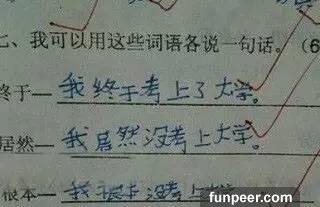 七、我可以用这些词语各说一句话。(6
终于—我终于考上了大学。
居然—我居然没考上大学。
根本—我根本没考上大学
funpeer.com